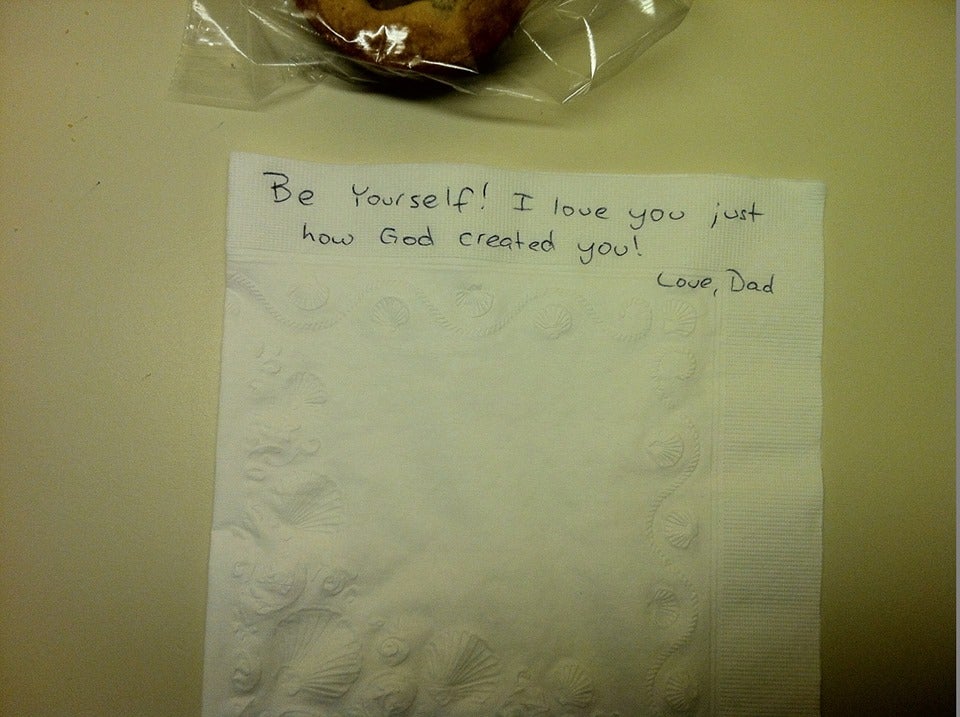 Be Yourself! I love you just
how God created you!
Love, Dad